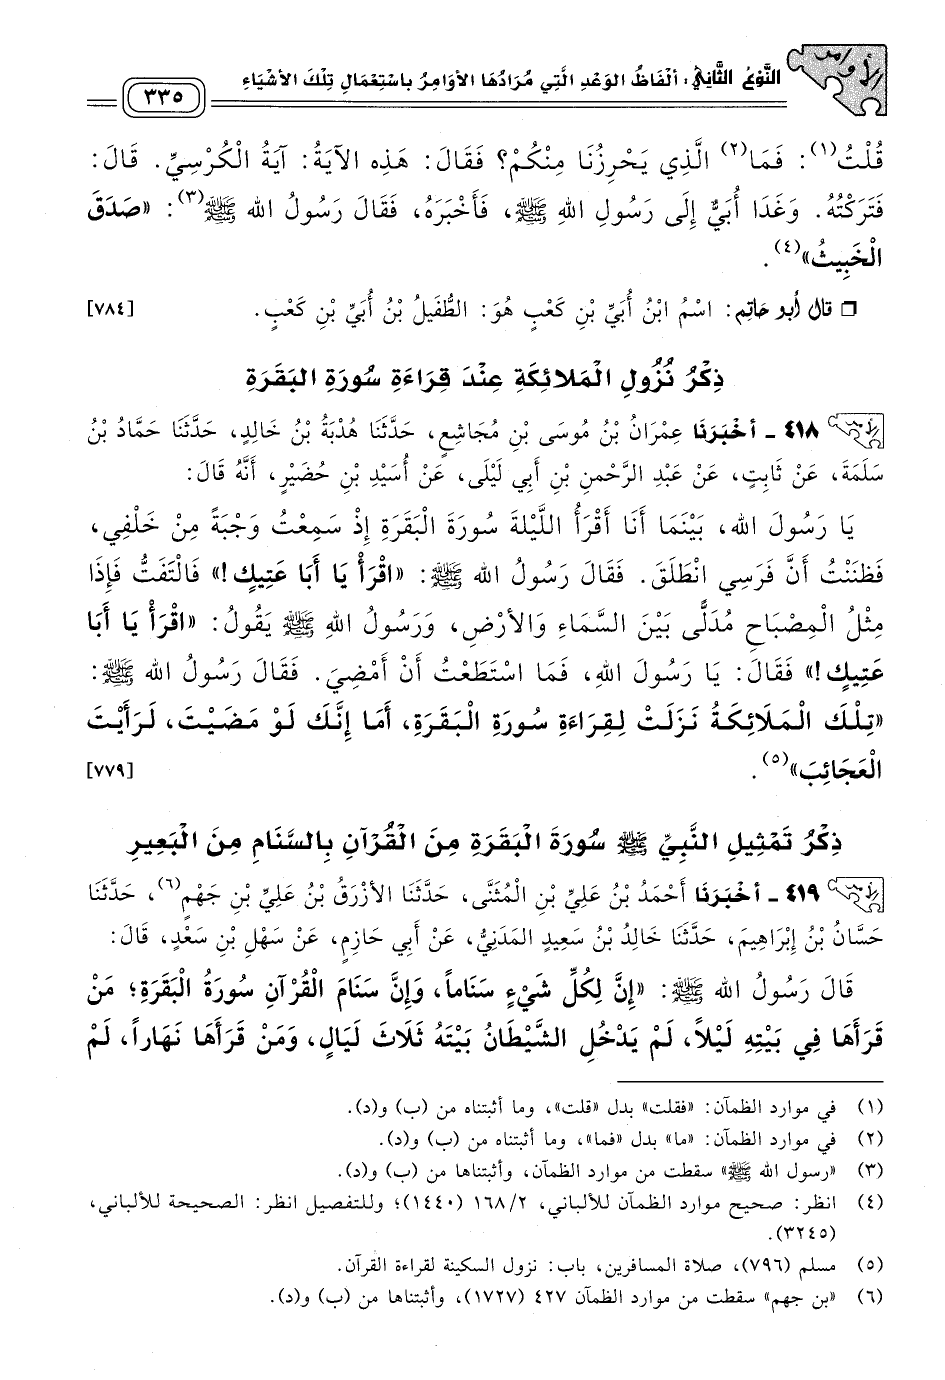 الأوامر
النَّوْعُ الثَّانِيْ: ألفَاظُ الوَعْدِ الَّتِي مُرَادُهَا الأوَامِرُ بِاسْتِعْمَالِ تِلْكَ الأشْيَاءِ
٣٣٥
قُلْتُ(١): فَمَا(٢) الَّذِي يَحْرِزُنَا مِنْكُمْ؟ فَقَالَ: هَذِهِ الآيَةُ: آيَةُ الْكُرْسِيِّ. قَالَ:
فَتَرَكْتُهُ. وَغَدَا أُبَيٌّ إِلَى رَسُولِ اللهِ ﷺ، فَأَخْبَرَهُ، فَقَالَ رَسُولُ الله ﷺ(٣): «صَدَقَ
الْخَبِيثُ»(٤).
❒ قال أبو حاتِم: اسْمُ ابْنُ أُبَيِّ بْنِ كَعْبٍ هُوَ: الطُّفَيْلُ بْنُ أُبَيِّ بْنِ كَعْبٍ. [٧٨٤]
ذِكْرُ نُزُولِ الْمَلائِكَةِ عِنْدَ قِرَاءَةِ سُورَةِ البَقَرَةِ
٤١٨ - أخْبَرَنَا عِمْرَانُ بْنُ مُوسَى بْنِ مُجَاشِعٍ، حَدَّثَنَا هُدْبَةُ بْنُ خَالِدٍ، حَدَّثَنَا حَمَّادُ بْنُ
سَلَمَةَ، عَنْ ثَابِتٍ، عَنْ عَبْدِ الرَّحْمنِ بْنِ أَبِي لَيْلَى، عَنْ أُسَيْدِ بْنِ حُضَيْرٍ، أَنَّهُ قَالَ:
يَا رَسُولَ الله، بَيْنَمَا أَنَا أَقْرَأُ اللَّيْلَةَ سُورَةَ الْبَقَرَةِ إِذْ سَمِعْتُ وَجْبَةً مِنْ خَلْفِي،
فَظَنَنْتُ أَنَّ فَرَسِي انْطَلَقَ. فَقَالَ رَسُولُ الله ﷺ: «اقْرَأْ يَا أَبَا عَتِيكٍ!» فَالْتَفَتُّ فَإِذَا
مِثْلُ الْمِصْبَاحِ مُدَلًّى بَيْنَ السَّمَاءِ وَالأرْضِ، وَرَسُولُ اللهِ ﷺ يَقُولُ: «اقْرَأْ يَا أَبَا
عَتِيكٍ!» فَقَالَ: يَا رَسُولَ اللهِ، فَمَا اسْتَطَعْتُ أَنْ أَمْضِيَ. فَقَالَ رَسُولُ الله ﷺ:
«تِلْكَ الْمَلَائِكَةُ نَزَلَتْ لِقِرَاءَةِ سُورَةِ الْبَقَرَةِ، أَمَا إِنَّكَ لَوْ مَضَيْتَ، لَرَأَيْتَ
الْعَجَائِبَ»(٥). [٧٧٩]
ذِكْرُ تَمْثِيلِ النَّبِيِّ ﷺ سُورَةَ الْبَقَرَةِ مِنَ الْقُرْآنِ بِالسَّنَامِ مِنَ الْبَعِيرِ
٤١٩ - أخْبَرَنَا أَحْمَدُ بْنُ عَلِيِّ بْنِ الْمُثَنَّى، حَدَّثَنَا الأزْرَقُ بْنُ عَلِيِّ بْنِ جَهْمٍ(٦)، حَدَّثَنَا
حَسَّانُ بْنُ إِبْرَاهِيمَ، حَدَّثَنَا خَالِدُ بْنُ سَعِيدٍ المَدَنِيُّ، عَنْ أَبِي حَازِمٍ، عَنْ سَهْلِ بْنِ سَعْدٍ، قَالَ:
قَالَ رَسُولُ الله ﷺ: «إِنَّ لِكُلِّ شَيْءٍ سَنَاماً، وَإِنَّ سَنَامَ الْقُرْآنِ سُورَةُ الْبَقَرَةِ؛ مَنْ
قَرَأَهَا فِي بَيْتِهِ لَيْلاً، لَمْ يَدْخُلِ الشَّيْطَانُ بَيْتَهُ ثَلَاثَ لَيَالٍ، وَمَنْ قَرَأَهَا نَهَاراً، لَمْ
(١) في موارد الظمآن: «فقلت» بدل «قلت»، وما أثبتناه من (ب) و(د).
(٢) في موارد الظمآن: «ما» بدل «فما»، وما أثبتناه من (ب) و(د).
(٣) «رسول الله ﷺ» سقطت من موارد الظمآن، وأثبتناها من (ب) و(د).
(٤) انظر: صحيح موارد الظمآن للألباني، ١٦٨/٢ (١٤٤٠)؛ وللتفصيل انظر: الصحيحة للألباني،
(٣٢٤٥).
(٥) مسلم (٧٩٦)، صلاة المسافرين، باب: نزول السكينة لقراءة القرآن.
(٦) «بن جهم» سقطت من موارد الظمآن ٤٢٧ (١٧٢٧)، وأثبتناها من (ب) و(د).